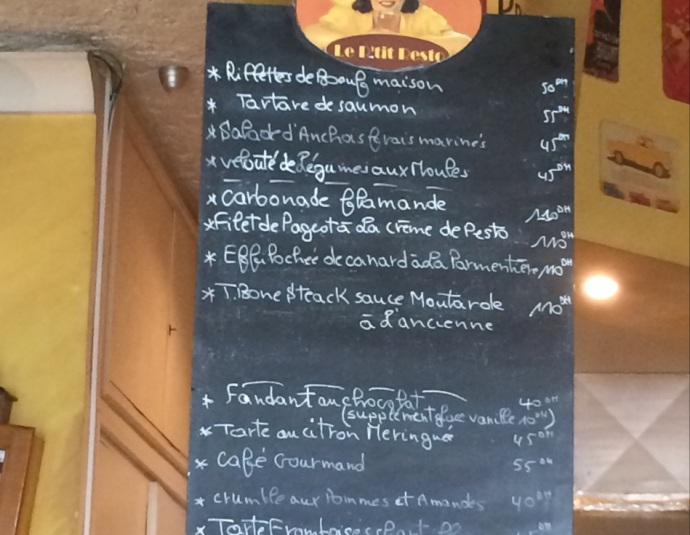 Le P'tit Resto
* Riffettes de Boeuf maison 50 DH
* Tartare de saumon 55 DH
* Salade d'Anchois frais marinés 45 DH
* velouté de Légumes aux Moules 45 DH
* Carbonade flamande 110 DH
* Filet de Pageot à la crème de Pesto 110 DH
* Effilochée de canard à la Parmentière 110 DH
* T.Bone Steack sauce Moutarde 110 DH
à l'ancienne
* Fondant au chocolat 40 DH
(supplément glace vanille 10 DH)
* Tarte au citron Meringué 45 DH
* Café Gourmand 55 DH
* crumble aux Pommes et Amandes 40 DH
* Tarte Framboises